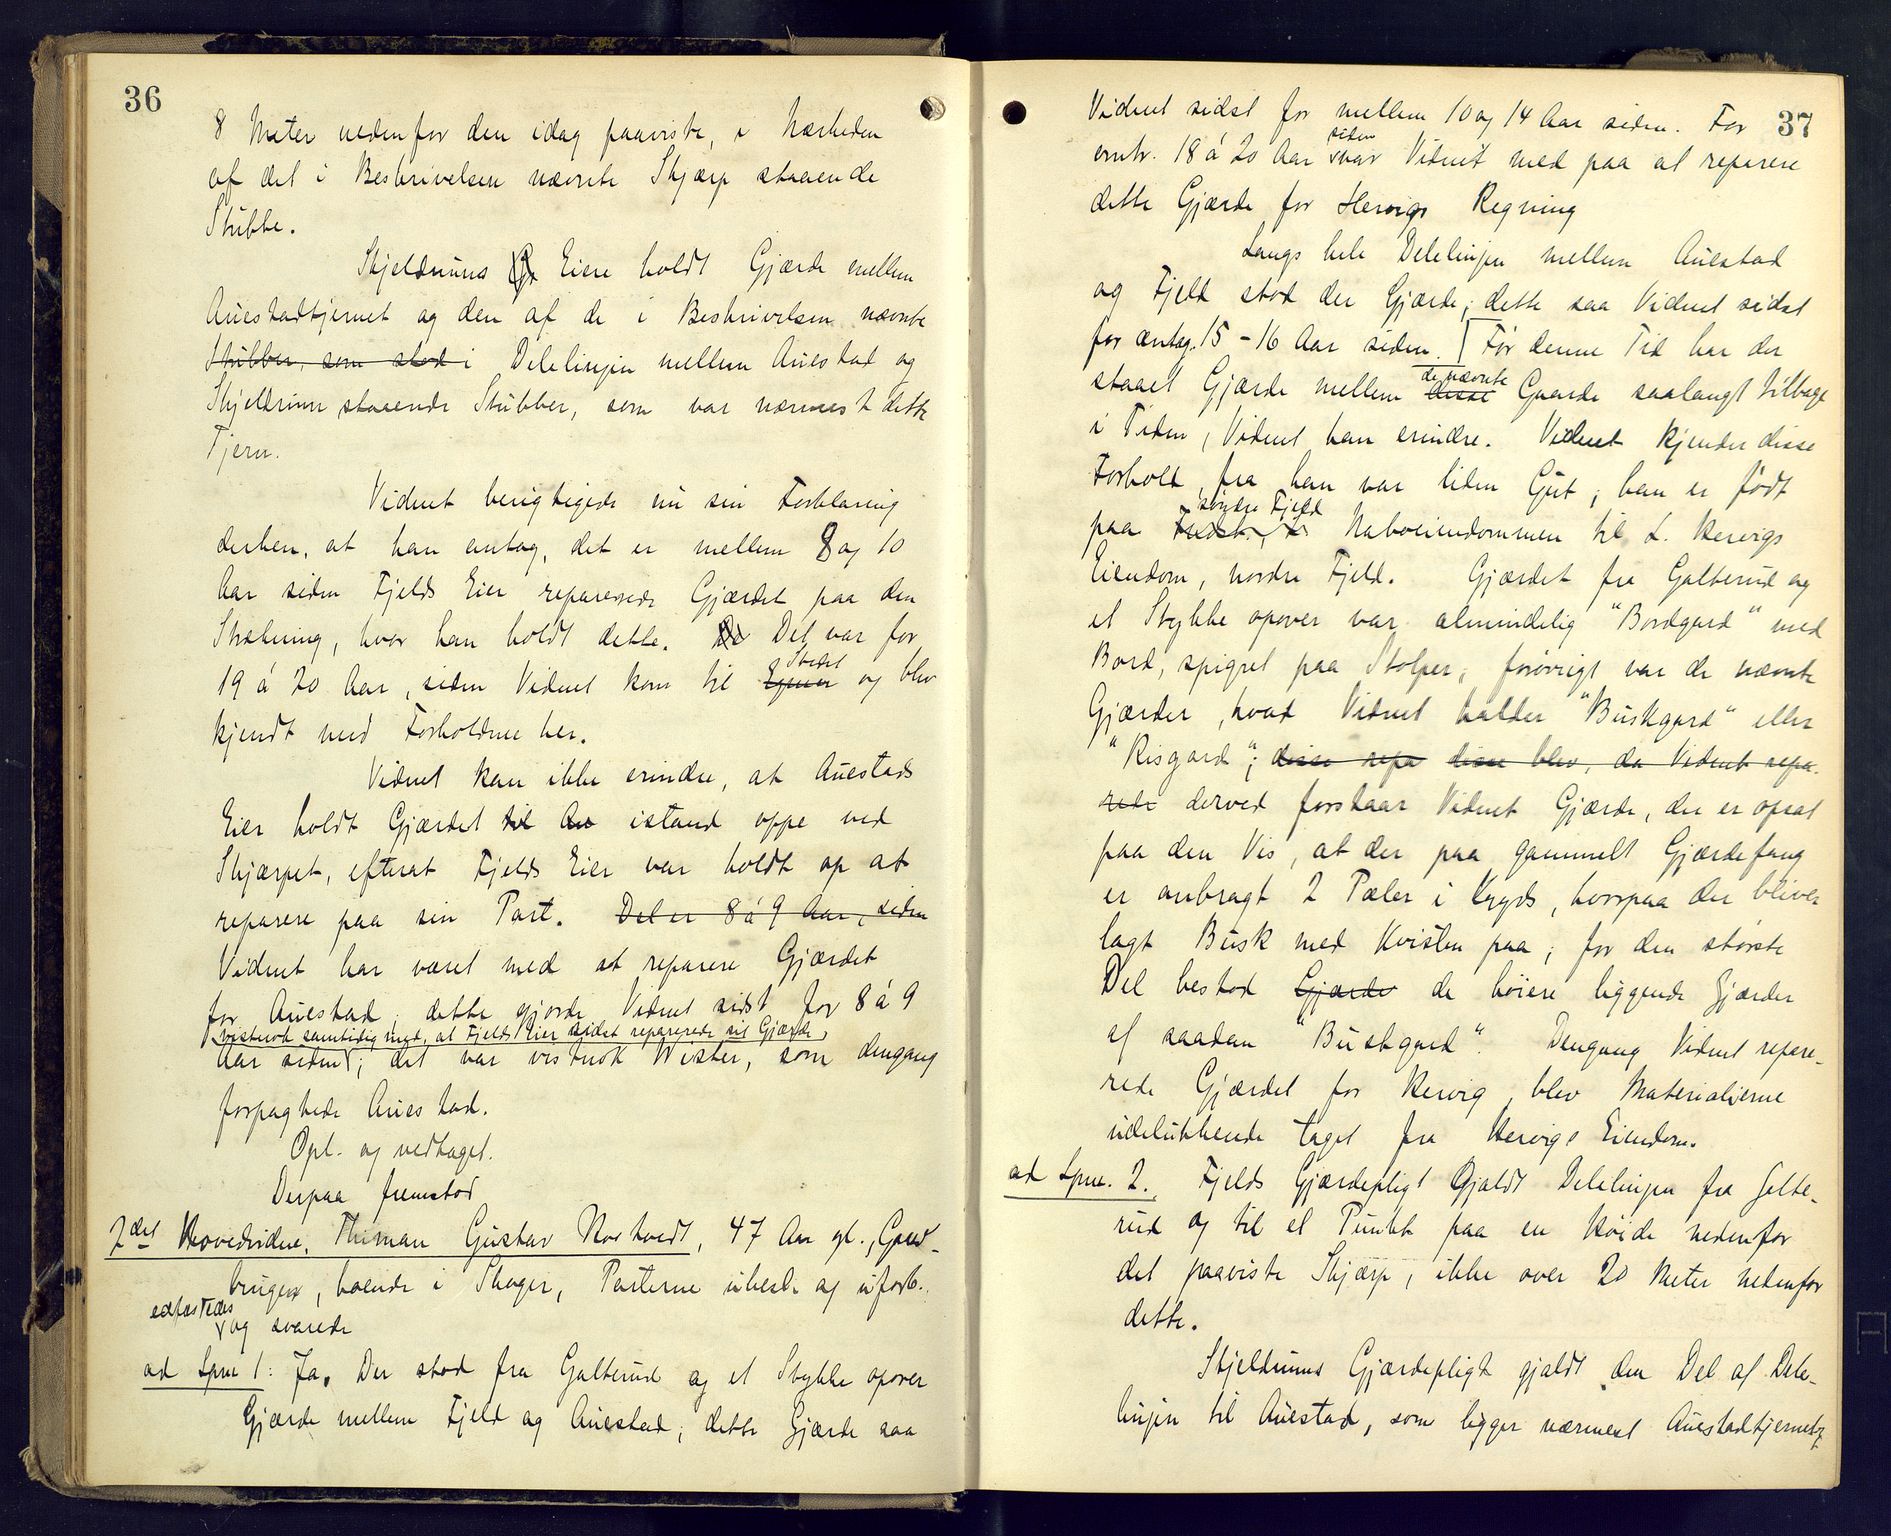 36
8 Meter nedenfor den idag paaviste, i Nærheden
af det i Beskrivelsen nævnte Skjærp staaende
Stubbe.
Skjeldrums Eiere holdt Gjærde mellem
Auestadtjernet og den af de i Beskrivelsen nævnte
Stubber, som stod i Delelinjen mellem Auestad og
Skjeldrum staaende Stubber, som var nærmest dette
Tjern.
Vidnet berigtigede nu sin Forklaring
derhen, at han antog, det er mellem 8 og 10
Aar siden Fjelds Eier reparerede Gjærdet paa den
Strækning, hvor han holdt dette. De Det var for
19 á 20 Aar, siden Vidnet kom til Stedet og blev
kjendt med Forholdene her.
Vidnet kan ikke erindre, at Auestads
Eier holdt Gjærdet til Au istand oppe ved
Skjærpet, efterat Fjelds Eier var holdt op at
reparere paa sin Part. Det er 8 á 9 Aar, siden
Vidnet har været med at reparere Gjærdet
for Auestad, dette gjorde Vidnet sidst for 8 á 9
vistnok samtidig med, at Fjelds Eier sidst reparerede sit Gjærde,
Aar siden; det var vistnok Wister, som dengang
forpagtede Auestad.
Opl. og vedtaget.
Derpaa fremstod
2det Hovedvidne, Thiman Gustav Nortvedt, 47 Aar gl., Gaard-
bruger, boende i Skoger, Parterne ubesl. og uforb.
edfæstedes
og svarede
ad Spm 1: Ja. Der stod fra Galterud og et Stykke opover
Gjærde mellem Fjeld og Auestad; dette Gjærde saa
37
Vidnet sidst for mellem 10 og 14 Aar siden. For
siden
omtr. 18 á 20 Aar var Vidnet med paa at reparere
dette Gjærde for Hervigs Regning
Langs hele Delelinjen mellem Auestad
og Fjeld stod der Gjærde; dette saa Vidnet sidst
for antag. 15 - 16 Aar siden. Før denne Tid har der
de nævnte
staaet Gjærde mellem disse Gaarde saalangt tilbage
i Tiden, Vidnet kan erindre. Vidnet kjender disse
Forhold, fra han var liden Gut; han er født
søndre Fjeld
paa Naboeiendommen til L. Hervigs
Eiendom, nordre Fjeld. Gjærdet fra Galterud og
et Stykke opover var almindelig "Bordgard" med
Bord, spigret paa Stolper; forøvrigt var de nævnte
Gjærder, hvad Vidnet kalder "Buskgard" eller
"Risgard"; disse repa disse blev, da Vidnet repa-
rede derved forstaar Vidnet Gjærde, der er opsat
paa den Vis, at der paa gammelt Gjærdefang
er anbragt 2 Pæler i Kryds, hvorpaa der bliver
lagt Busk med Kvisten paa; for den største
Del bestod Gjærde de høiere liggende Gjærder
af saadan "Buskgard". Dengang Vidnet repare-
rede Gjærdet for Hervig, blev Materialierne
udelukkende taget fra Hervigs Eiendom.
ad Spm. 2. Fjelds Gjærdepligt Gjaldt Delelinjen fra Galte-
rud og til et Punkt paa en Høide nedenfor
det paaviste Skjærp, ikke over 20 Meter nedenfor
dette.
Skjeldrums Gjærdepligt gjaldt den Del af Dele-
linjen til Auestad, som ligger nærmest Auestadtjernet,